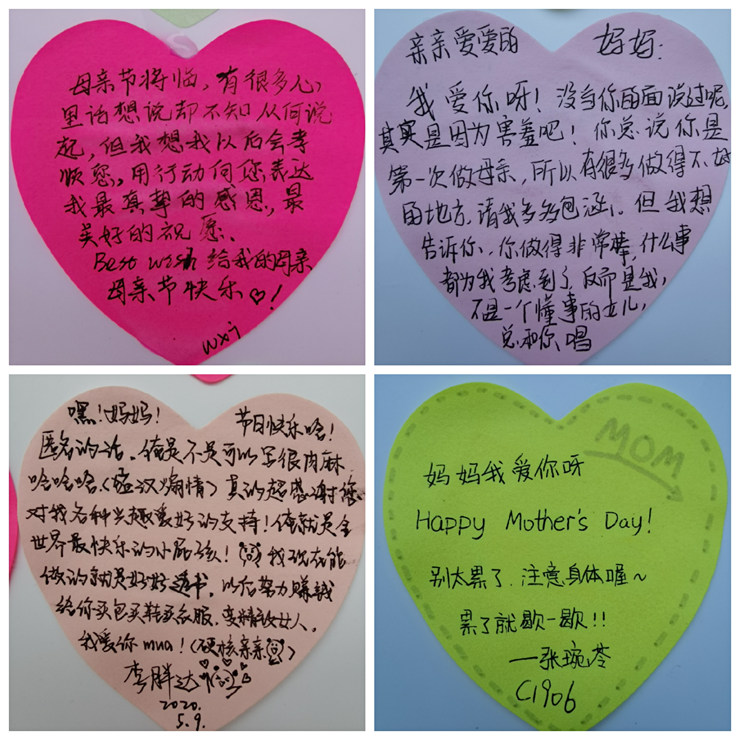 母亲节将临,有很多心
里话想说却不知从何说
起,但我想我以后会孝
顺您,用行动向您表达
我最真挚的感恩,最
美好的祝愿、
Best wish 给我的母亲
母亲节快乐♡!
wxj
亲亲爱爱的 妈妈:
我爱你呀!没当你面面说过呢,
其实是因为害羞吧!你总说你是
第一次做母亲,所以有很多做得不好
的地方,请我多多包涵,但我想
告诉你,你做得非常棒,什么事
都为我考虑到了,反而是我,
不是一个懂事的女儿,
总和你唱
嘿!妈妈! 节日快乐哈!
匿名的话,俺是不是可以写很肉麻
哈哈哈(猛汉煽情)真的超感谢
对我各种兴趣爱好的支持!俺就是全
世界最快乐的小屁孩!我现在能
做的就是好好读书,以后努力赚钱
给你买包买鞋买衣服,变精致女人,
我爱你mua!(硬核亲亲)
李胖达
2020.
5.9.
MOM
妈妈我爱你呀
Happy Mother's Day!
别太累了,注意身体喔~
累了就歇一歇!!
—张琬苓
C1906